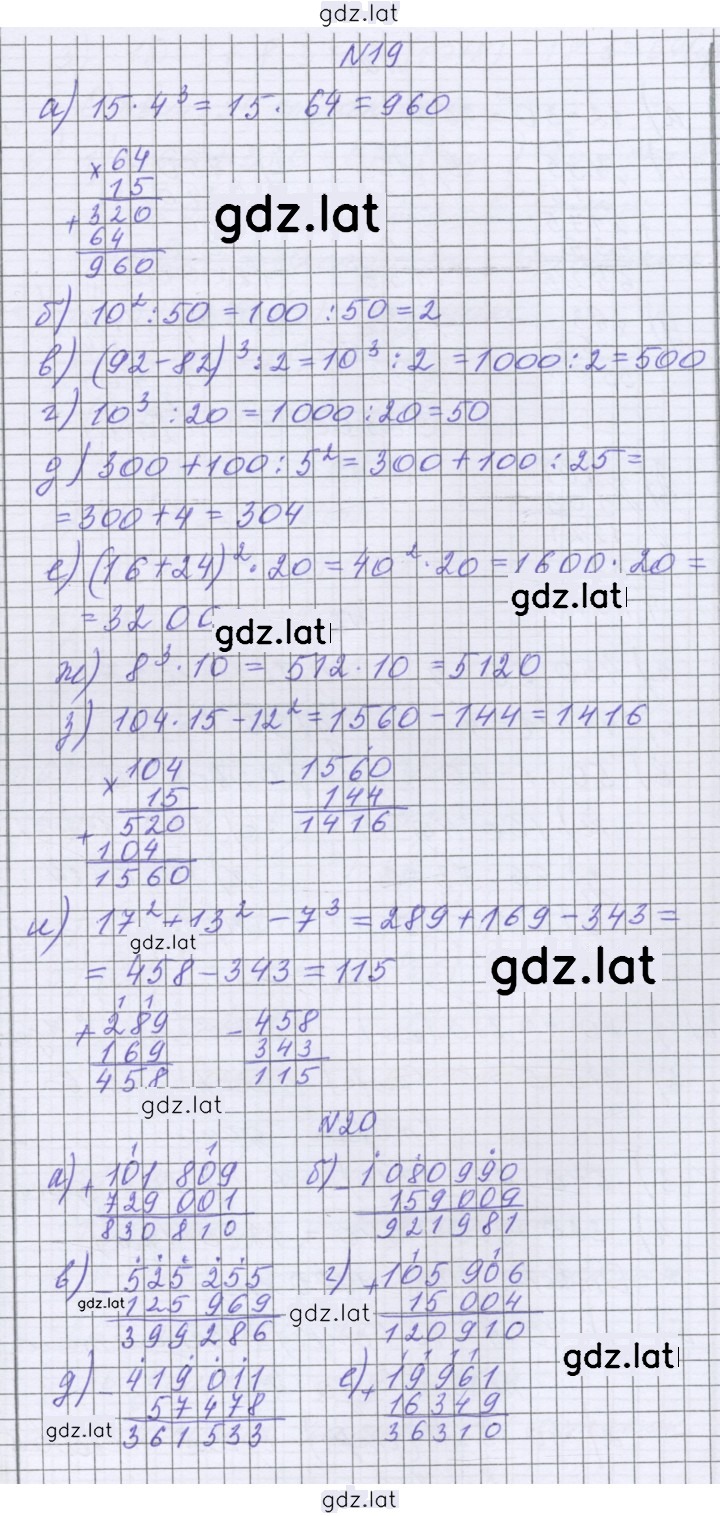 gdz.lat
N19
а) 15 · 4³ = 15 · 64 = 960
× 64
15
+ 320
64
960
gdz.lat
б) 10² : 50 = 100 : 50 = 2
в) (92 - 82)³ : 2 = 10³ : 2 = 1000 : 2 = 500
г) 10³ : 20 = 1000 : 20 = 50
д) 300 + 100 : 5² = 300 + 100 : 25 =
= 300 + 4 = 304
е) (16 + 24)² · 20 = 40² · 20 = 1600 · 20 =
gdz.lat
= 3200
gdz.lat
ж) 8³ · 10 = 512 · 10 = 5120
з) 104 · 15 - 12² = 1560 - 144 = 1416
× 104
15
+ 520
104
1560
- 1560
144
1416
и) 17² + 13² - 7³ = 289 + 169 - 343 =
gdz.lat
= 458 - 343 = 115
gdz.lat
1 1
+ 289
169
458
- 458
343
115
gdz.lat
N20
1 1
а) + 101 809
729 001
830 810
б) - 1 080 990
159 009
921 981
в) 525 255
125 969
399 286
gdz.lat
1 1
г) + 105 906
15 004
120 910
gdz.lat
д) - 419 011
57 478
361 533
gdz.lat
1 1 1 1
е) + 19961
16349
36310
gdz.lat
gdz.lat